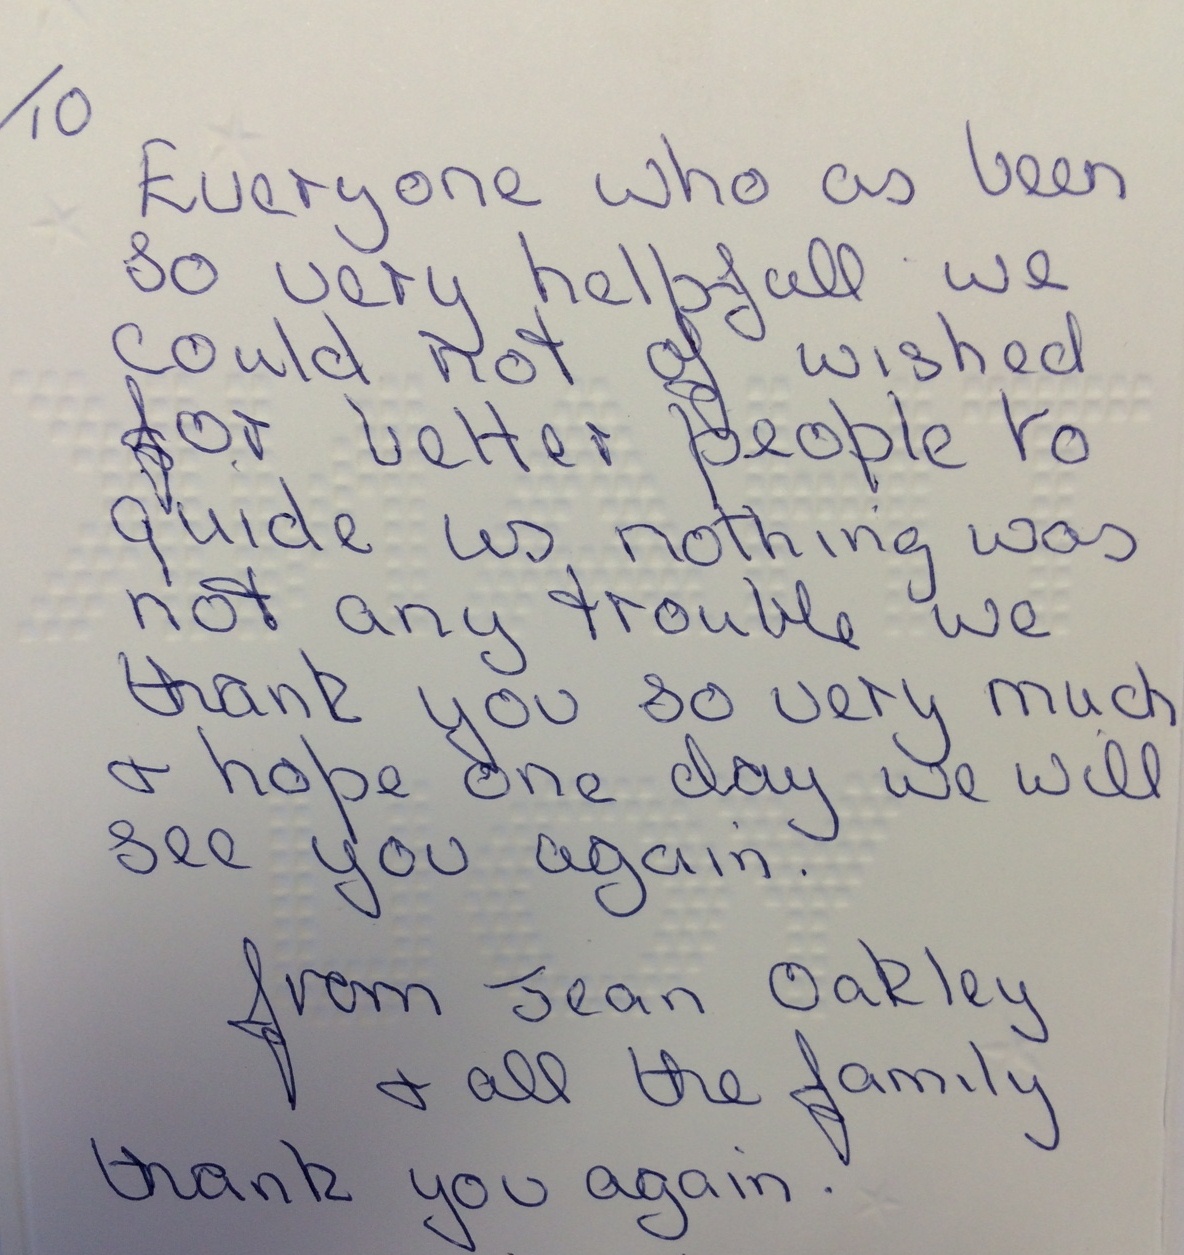 /10
Everyone who as been
so very helpfull we
could not of wished
for better people to
guide us nothing was
not any trouble we
thank you so very much
& hope one day we will
see you again.
from Jean Oakley
& all the family
thank you again.